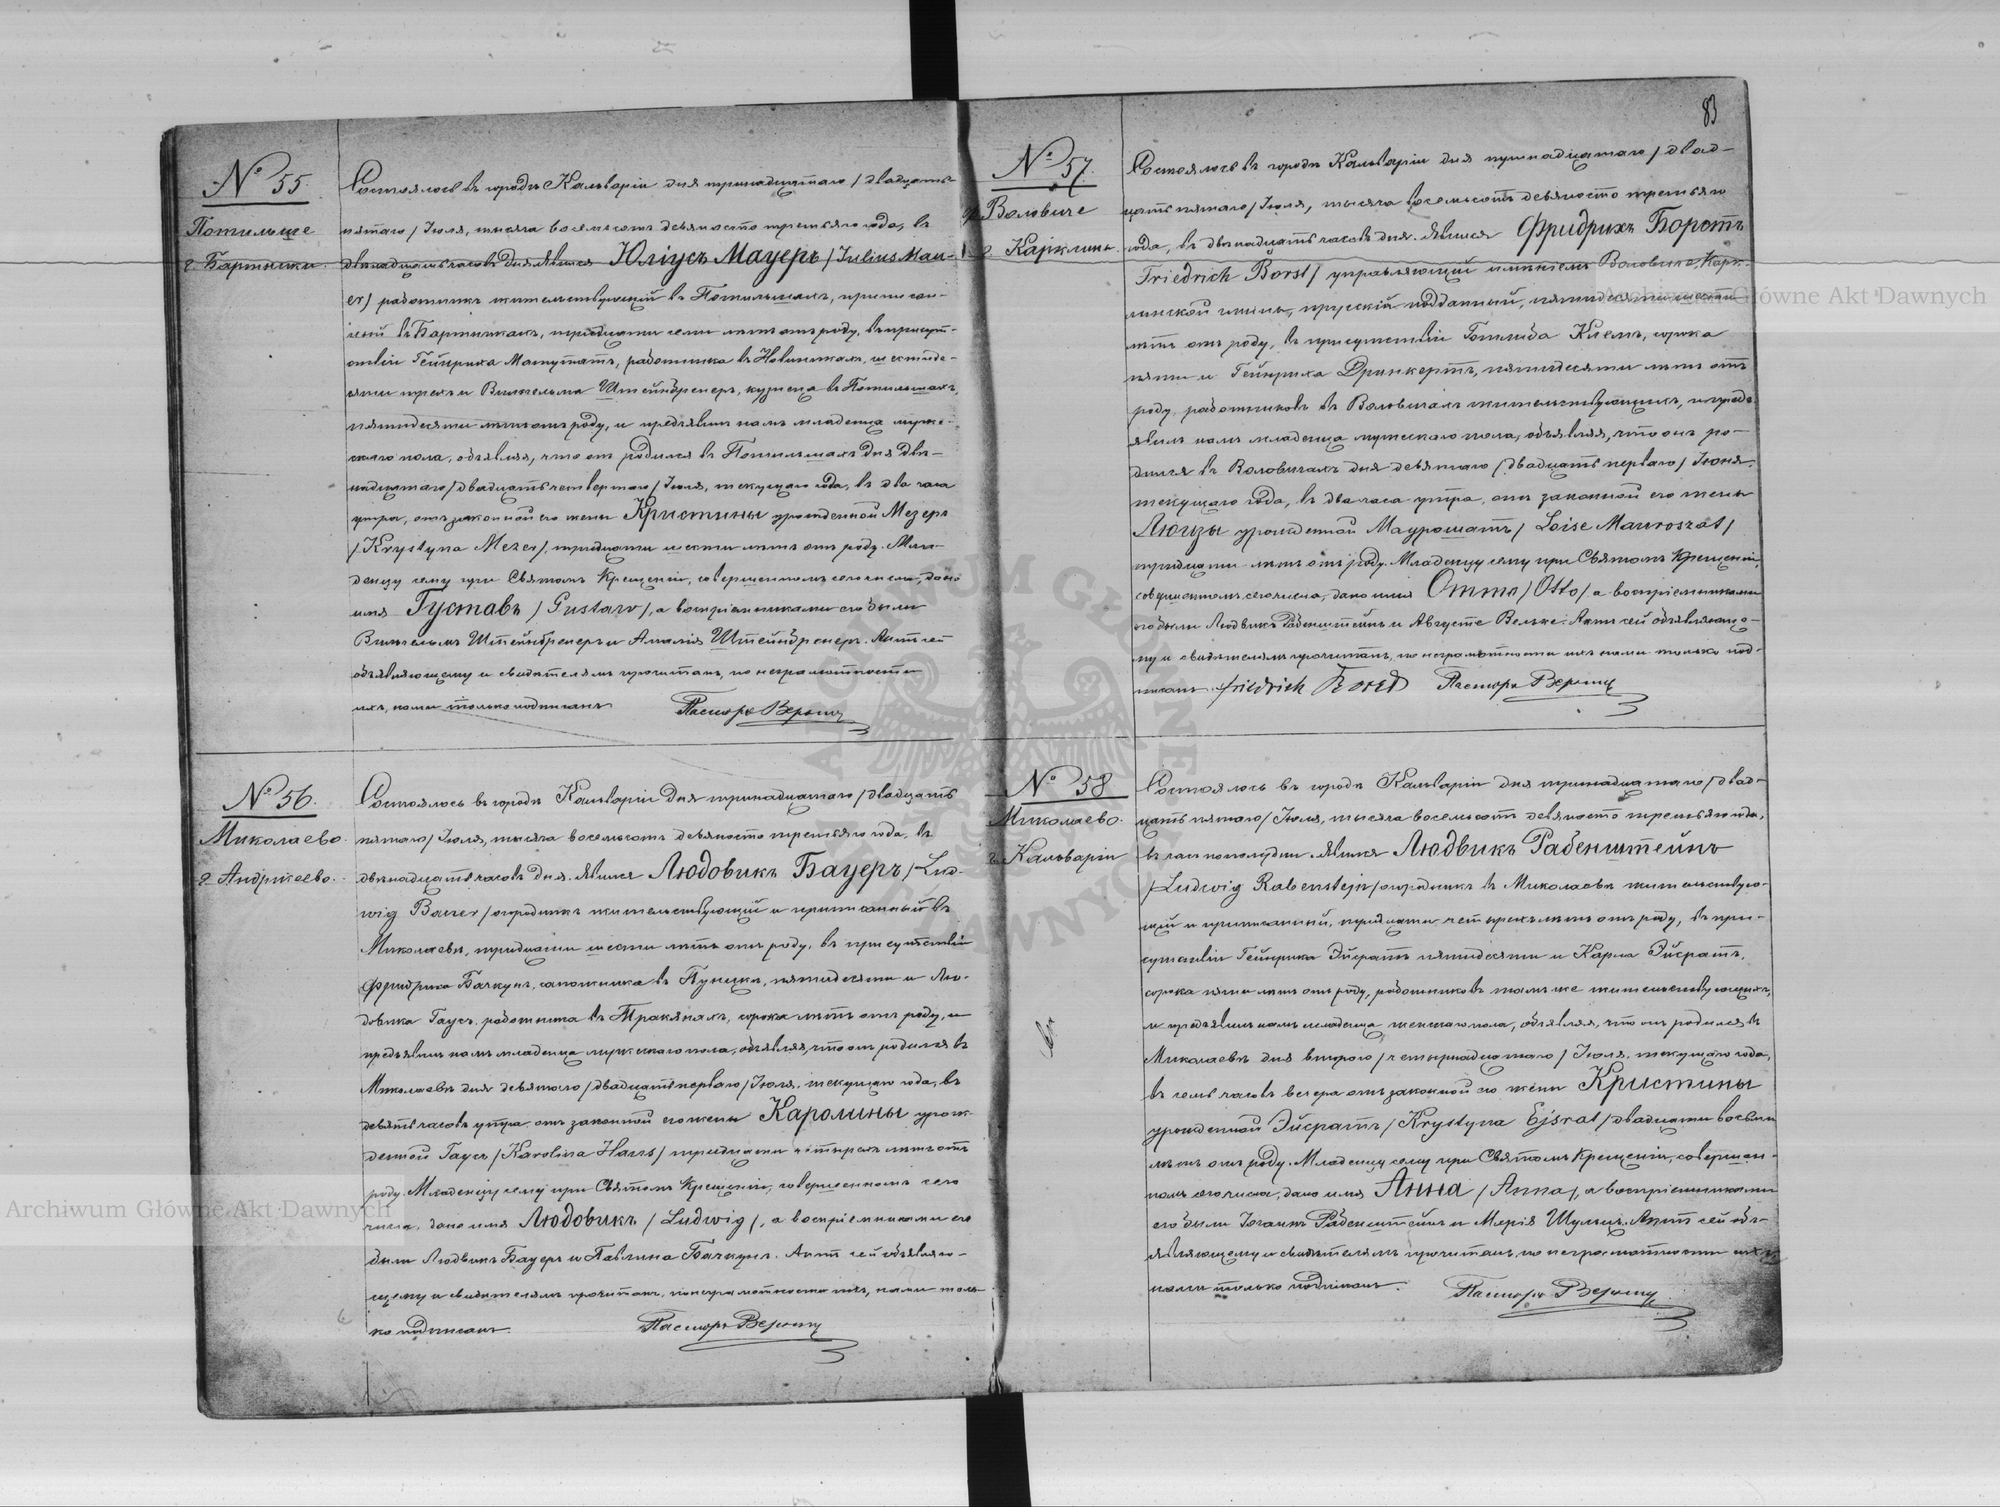 83
№ 55.
Потильше
г. Бартники.
Состоялось въ городѣ Кальваріи дня тринадцатаго / двадцать
пятаго / Іюля, тысяча восемьсотъ девяносто третьяго года, въ
двѣнадцать часовъ дня. явился Юліусъ Мауеръ / Julius Mau-
er / работникъ жительствующій въ Потильшахъ, приписан-
ный въ Бартникахъ, тридцати семи лѣтъ отъ роду, въ присут-
ствіи Гейнриха Матутатъ, работника въ Новиникахъ, шестиде-
сяти трехъ и Вильгельма Штейнбренеръ, кузнеца въ Потильшахъ,
пятидесяти лѣтъ отъ роду, и предъявилъ намъ младенца мужес-
скаго пола, объявляя, что онъ родился въ Потильшахъ дня двѣ-
надцатаго / двадцать четвертаго / Іюля, текущаго года, въ два часа
утра, отъ законной его жены Кристины урожденной Мезеръ
/ Krystyna Mezer /, тридцати шести лѣтъ отъ роду. Мла-
денцу сему при Святомъ Крещеніи, совершенномъ сего числа, дано
имя Густавъ / Gustaw /, а воспріемниками его были
Вильгельмъ Штейнбренеръ и Амалія Штейнбренеръ. Актъ сей
объявляющему и свидѣтелямъ прочитанъ, по неграмотности
ихъ, нами только подписанъ Пасторъ
№ 56.
Миколаево.
г. Андржеево.
Состоялось въ городѣ Кальваріи дня тринадцатаго / двадцать
пятаго / Іюля, тысяча восемьсотъ девяносто третьяго года, въ
двѣнадцать часовъ дня. явился Людовикъ Бауеръ / Lud-
wig Bauer / огородникъ жительствующій и приписанный въ
Миколаевѣ, тридцати шести лѣтъ отъ роду, въ присутствіи
Фридриха Бачкунъ, сапожника въ Пунскѣ, пятидесяти и Лю-
довика Гаусъ, работника въ Тракянахъ, сорока лѣтъ отъ роду, и
предъявилъ намъ младенца мужескаго пола, объявляя, что онъ родился въ
Миколаевѣ дня девятаго / двадцать перваго / Іюля, текущаго года, въ
девять часовъ утра, отъ законной его жены Каролины урож-
денной Гаусъ / Karolina Haus / тридцати четырехъ лѣтъ отъ
роду. Младенцу сему при Святомъ Крещеніи, совершенномъ сего
числа, дано имя Людовикъ / Ludwig /, а воспріемниками его
были Людвикъ Бауеръ и Павлина Бачкунъ. Актъ сей объявляю-
щему и свидѣтелямъ прочитанъ, по неграмотности ихъ, нами толь-
ко подписанъ. Пасторъ
№ 57.
Воловиче
г. Карклины.
Состоялось въ городѣ Кальваріи дня тринадцатаго / двад-
цать пятаго / Іюля, тысяча восемьсотъ девяносто третьяго
года, въ двѣнадцать часовъ дня. явился Фридрихъ Борстъ
Friedrich Borst / управляющій имѣніемъ Воловиче, Карк-
линской гмины, прусскій подданный, пятидесяти шести
лѣтъ отъ роду, въ присутствіи Готлиба Клемъ, сорока
пяти и Гейнриха Дринкертъ, пятидесяти лѣтъ отъ
роду, работниковъ въ Воловичахъ жительствующихъ, и предъ-
явилъ намъ младенца мужескаго пола, объявляя, что онъ ро-
дился въ Воловичахъ дня девятаго / двадцать перваго / Іюня,
текущаго года, въ два часа утра, отъ законной его жены
Люизы урожденной Маурошатъ / Loise Mauroszat /
тридцати лѣтъ отъ роду. Младенцу сему при Святомъ Крещеніи,
совершенномъ сего числа, дано имя Отто / Otto /, а воспріемниками
его были Людвикъ Рабенштейнъ и Августе Вельке. Актъ сей объявляюще-
му и свидѣтелямъ прочитанъ, по неграмотности ихъ нами только под-
писанъ. Friedrich Borst Пасторъ
№ 58
Миколаево.
г. Кальваріи
Состоялось въ городѣ Кальваріи дня тринадцатаго / двад-
цать пятаго / Іюля, тысяча восемьсотъ девяносто третьяго года,
въ часъ пополудни. явился Людвикъ Рабенштейнъ
/ Ludwig Rabenstejn / огородникъ въ Миколаевѣ жительствую-
щій и приписанный, тридцати четырехъ лѣтъ отъ роду, въ при-
сутствіи Гейнриха Эйсратъ пятидесяти и Карла Эйсратъ,
сорока пяти лѣтъ отъ роду, работниковъ тамъ же жительствующихъ,
и предъявилъ намъ младенца женскаго пола, объявляя, что онъ родился въ
Миколаевѣ дня втораго / четырнадцатаго / Іюля, текущаго года,
въ семь часовъ вечера отъ законной его жены Кристины
урожденной Эйсратъ / Krystyna Ejsrat / двадцати восьми
лѣтъ отъ роду. Младенцу сему при Святомъ Крещеніи, совершен-
номъ сего числа, дано имя Анна / Anna /, а воспріемниками
его были Іоганнъ Рабенштейнъ и Марія Шульц. Актъ сей объ-
являющему и свидѣтелямъ прочитанъ, по неграмотности ихъ
нами только подписанъ. Пасторъ
Archiwum Główne Akt Dawnych
Archiwum Główne Akt Dawnych
ARCHIWUM GŁÓWNE AKT DAWNYCH